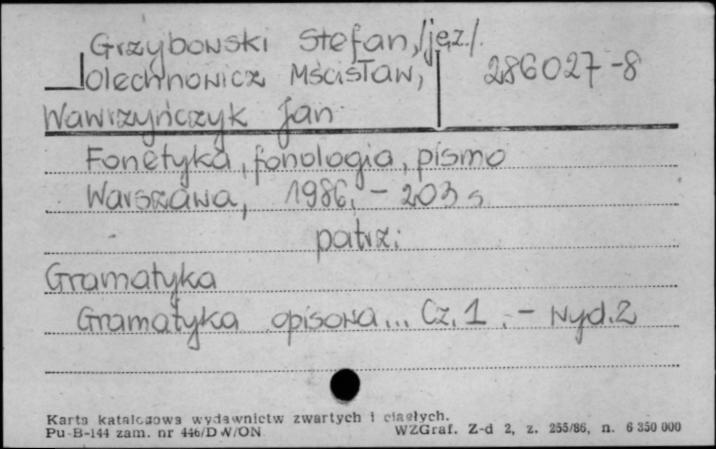 Grzybowski Stefan, /jęz./.
Olechnowicz Mścisław, 286027-8
Wawrzyńczyk Jan
Fonetyka, fonologia, pismo
Warszawa, 1986. - 203 s
patrz:
Gramatyka
Gramatyka opisowa... Cz. 1. - Wyd. 2
Karta katalogowa wydawnictw zwartych i ciągłych.
Pu-B-144 zam. nr 446/DW/ON WZGraf. Z-d 2, z. 255/86, n. 6 350 000